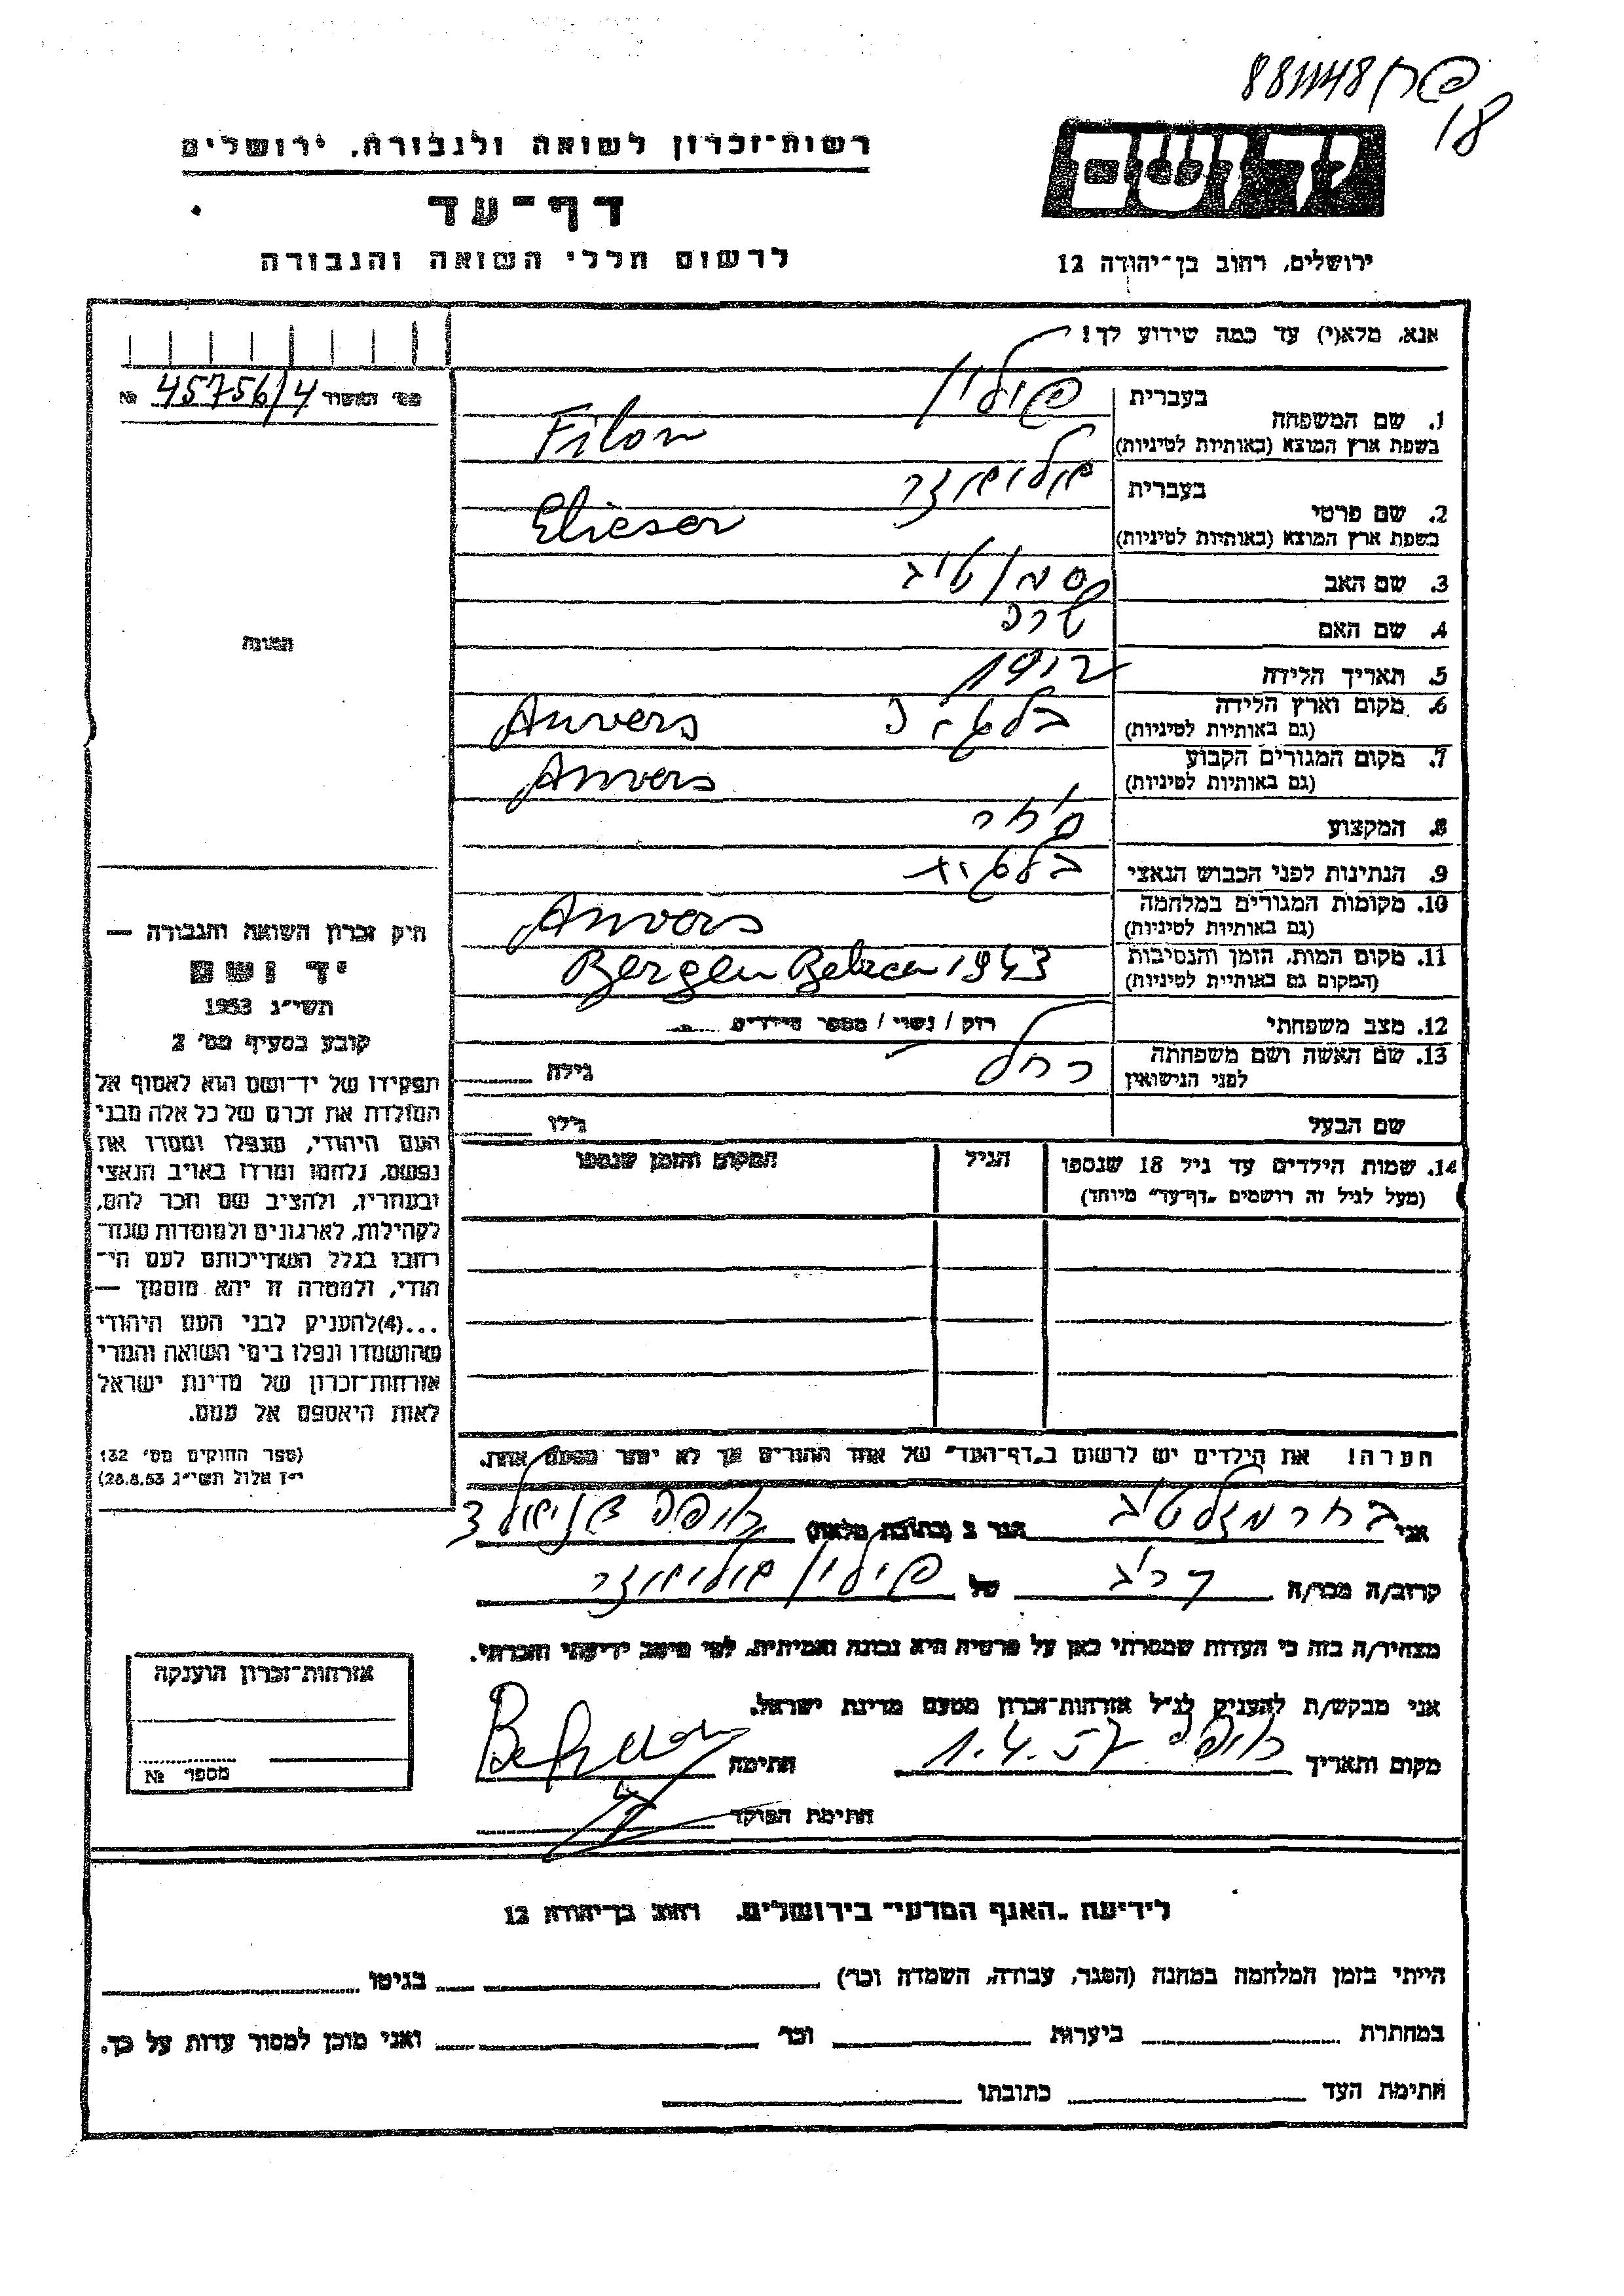 18
רשות־זכרון לשואה ולגבורה, ירושלים
יד ושם
דף־עד
לרשום חללי השואה והגבורה
ירושלים, רחוב בן־יהודה 12
אנא, מלא(י) עד כמה שידוע לך!
מס' האשור 45756/4 №
1. שם המשפחה
בעברית פילון
בשפת ארץ המוצא (באותיות לטיניות) Filon
2. שם פרטי
בעברית
בשפת ארץ המוצא (באותיות לטיניות) Elieser
3. שם האב
4. שם האם שרה
5. תאריך הלידה 1912
6. מקום וארץ הלידה
(גם באותיות לטיניות) בלגיה Anvers
7. מקום המגורים הקבוע
(גם באותיות לטיניות) Anvers
8. המקצוע סוחר
9. הנתינות לפני הכבוש הנאצי בלגית
10. מקומות המגורים במלחמה
(גם באותיות לטיניות) Anvers
11. מקום המות, הזמן והנסיבות
(המקום גם באותיות לטיניות) Bergen Belsen 1943
12. מצב משפחתי רוק / נשוי / מספר הילדים
13. שם האשה ושם משפחתה
לפני הנישואין רחל גילה
שם הבעל גילו
14. שמות הילדים עד גיל 18 שנספו
(מעל לגיל זה רושמים „דף־עד" מיוחד)
הגיל
המקום והזמן שנספו
הערה! את הילדים יש לרשום ב„דף־העד" של אחד ההורים אך לא יותר מפעם אחת.
התמונה
חוק זכרון השואה והגבורה —
יד ושם
תשי"ג 1953
קובע בסעיף מס' 2
תפקידו של יד־ושם הוא לאסוף אל
המולדת את זכרם של כל אלה מבני
העם היהודי, שנפלו ומסרו את
נפשם, נלחמו ומרדו באויב הנאצי
ובעוזריו, ולהציב שם וזכר להם,
לקהילות, לארגונים ולמוסדות שנח־
רחבו בגלל השתייכותם לעם הי־
הודי, ולמטרה זו יהא מוסמך —
...(4) להעניק לבני העם היהודי
שהושמדו ונפלו בימי השואה והמרי
אזרחות־זכרון של מדינת ישראל
לאות היאספם אל עמם.
(ספר החוקים מס' 132
י"ז אלול תשי"ג 28.8.53)
אני בחר מזלטוב הגר ב (כתובת מלאה)
קרוב/ה מכר/ה של פילון
מצהיר/ה בזה כי העדות שמסרתי כאן על פרטיה היא נכונה ואמיתית, לפי מיטב ידיעתי והכרתי.
אני מבקש/ת להעניק לנ"ל אזרחות־זכרון מטעם מדינת ישראל.
מקום ותאריך 1.4.57 חתימה
חתימת הפוקד
אזרחות־זכרון הוענקה
מספר №
לידיעת „האגף המדעי" בירושלים, רחוב בן־יהודה 12
הייתי בזמן המלחמה במחנה (הסגר, עבודה, השמדה וכו') בגיטו
במחתרת ביערות וכו' ואני מוכן למסור עדות על כך.
חתימת העד כתובתו